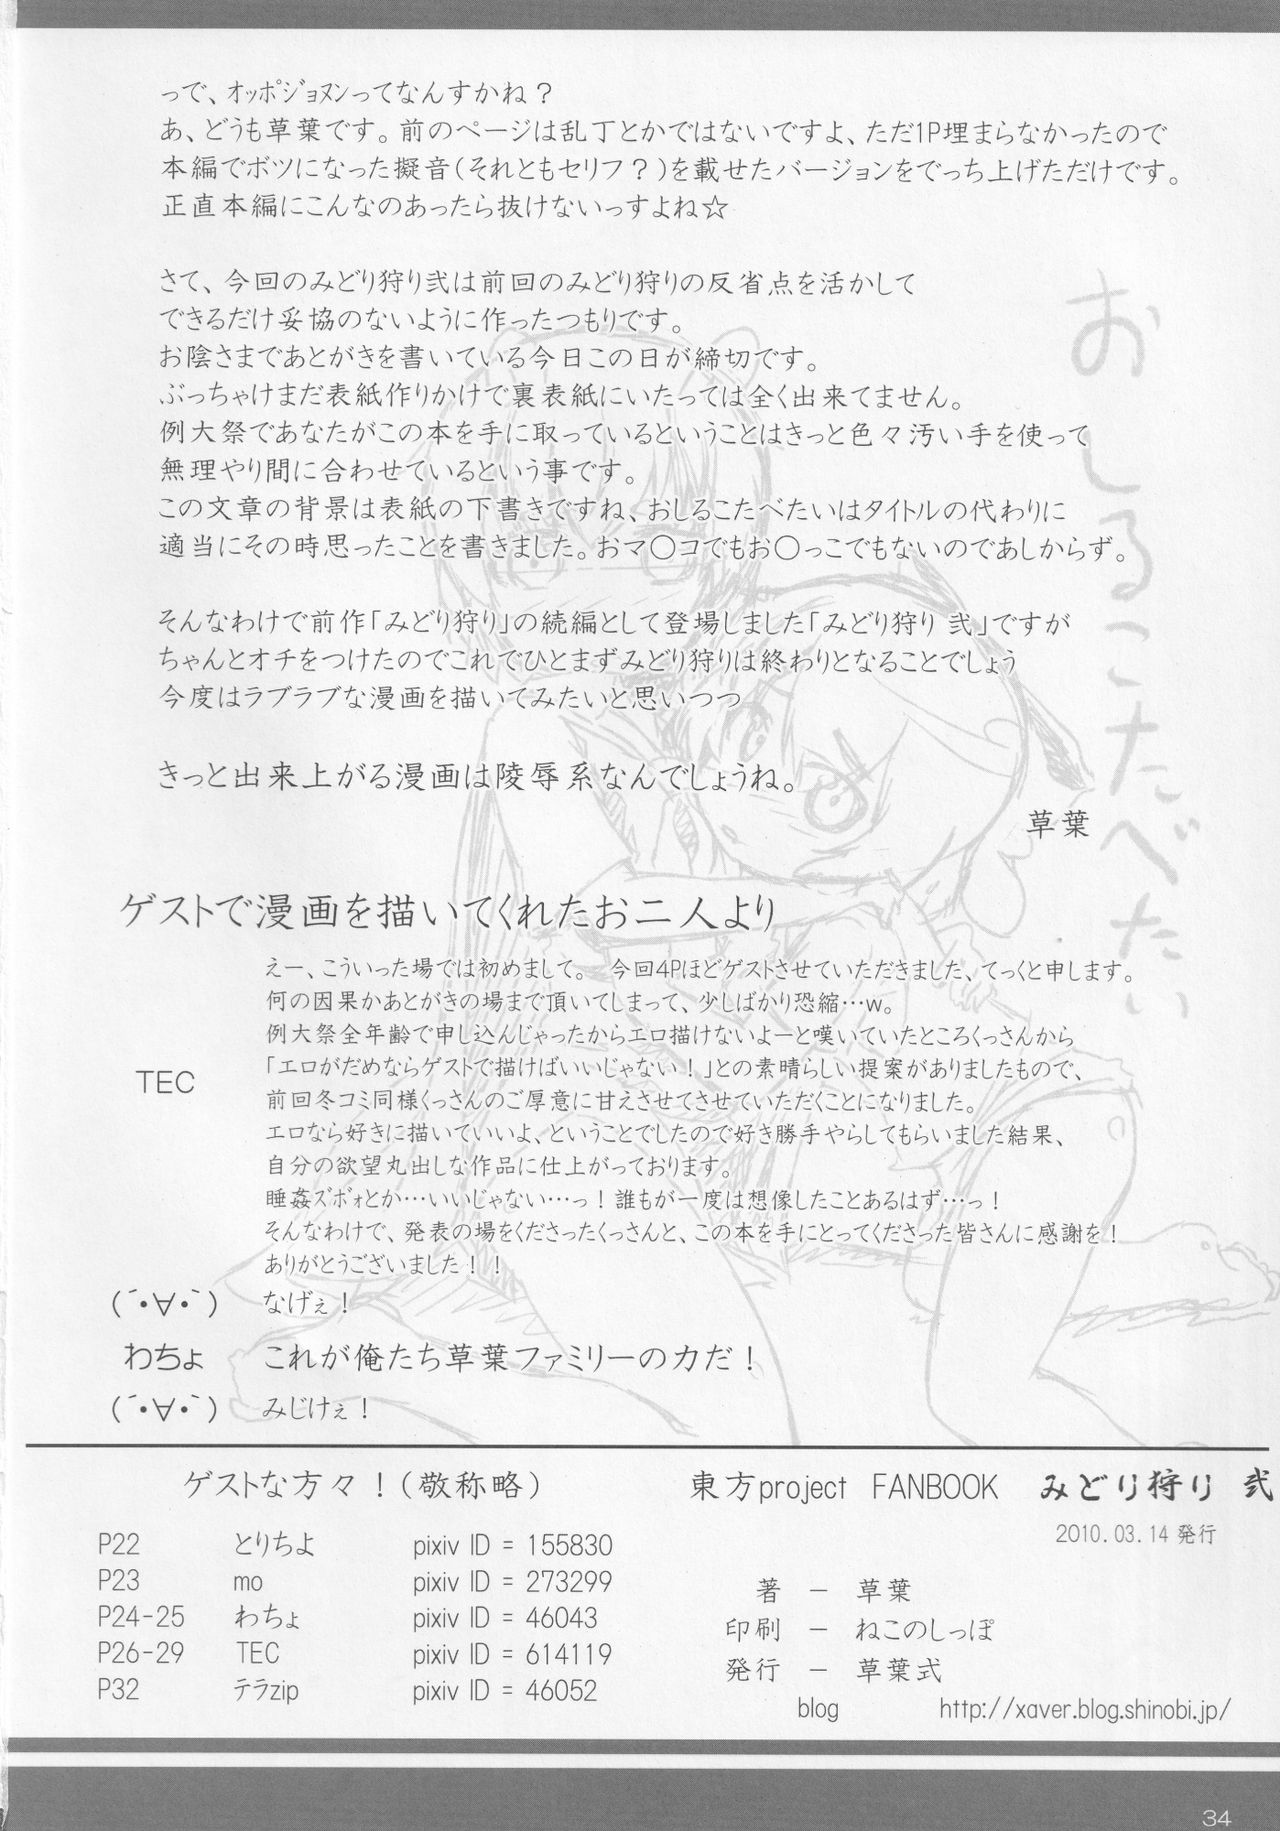 っで、ｵｯﾎﾟｼﾞｮﾇﾝってなんすかね？
あ、どうも草葉です。前のページは乱丁とかではないですよ、ただ1P埋まらなかったので
本編でボツになった擬音(それともセリフ？)を載せたバージョンをでっち上げただけです。
正直本編にこんなのあったら抜けないっすよね☆
さて、今回のみどり狩り弐は前回のみどり狩りの反省点を活かして
できるだけ妥協のないように作ったつもりです。
お陰さまであとがきを書いている今日この日が締切です。
ぶっちゃけまだ表紙作りかけで裏表紙にいたっては全く出来てません。
例大祭であなたがこの本を手に取っているということはきっと色々汚い手を使って
無理やり間に合わせているという事です。
この文章の背景は表紙の下書きですね、おしるこたべたいはタイトルの代わりに
適当にその時思ったことを書きました。おマ〇コでもお〇っこでもないのであしからず。
そんなわけで前作「みどり狩り」の続編として登場しました「みどり狩り 弐」ですが
ちゃんとオチをつけたのでこれでひとまずみどり狩りは終わりとなることでしょう
今度はラブラブな漫画を描いてみたいと思いつつ
きっと出来上がる漫画は陵辱系なんでしょうね。
草葉
おしるこたべたい
ゲストで漫画を描いてくれたお二人より
TEC
えー、こういった場では初めまして。 今回4Pほどゲストさせていただきました、てっくと申します。
何の因果かあとがきの場まで頂いてしまって、少しばかり恐縮…w。
例大祭全年齢で申し込んじゃったからエロ描けないよーと嘆いていたところくっさんから
「エロがだめならゲストで描けばいいじゃない！」との素晴らしい提案がありましたもので、
前回冬コミ同様くっさんのご厚意に甘えさせてさせていただくことになりました。
エロなら好きに描いていいよ、ということでしたので好き勝手やらしてもらいました結果、
自分の欲望丸出しな作品に仕上がっております。
睡姦ｽﾞﾎﾞｫとか…いいじゃない…っ！誰もが一度は想像したことあるはず…っ！
そんなわけで、発表の場をくださったくっさんと、この本を手にとってくださった皆さんに感謝を！
ありがとうございました！！
(´･∀･`) なげぇ！
わちょ これが俺たち草葉ファミリーの力だ！
(´･∀･`) みじけぇ！
ゲストな方々！(敬称略)
P22 とりちよ pixiv ID = 155830
P23 mo pixiv ID = 273299
P24-25 わちょ pixiv ID = 46043
P26-29 TEC pixiv ID = 614119
P32 テラzip pixiv ID = 46052
東方project FANBOOK みどり狩り 弐
2010.03.14 発行
著 － 草葉
印刷 － ねこのしっぽ
発行 － 草葉式
blog http://xaver.blog.shinobi.jp/
34